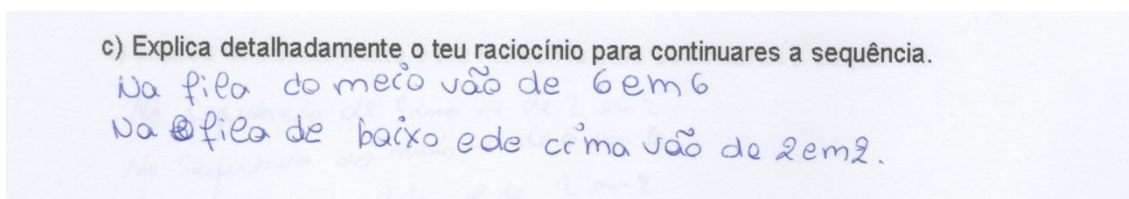 c) Explica detalhadamente o teu raciocínio para continuares a sequência.
Na fila do meio vão de 6 em 6
Na fila de baixo e de cima vão de 2 em 2.